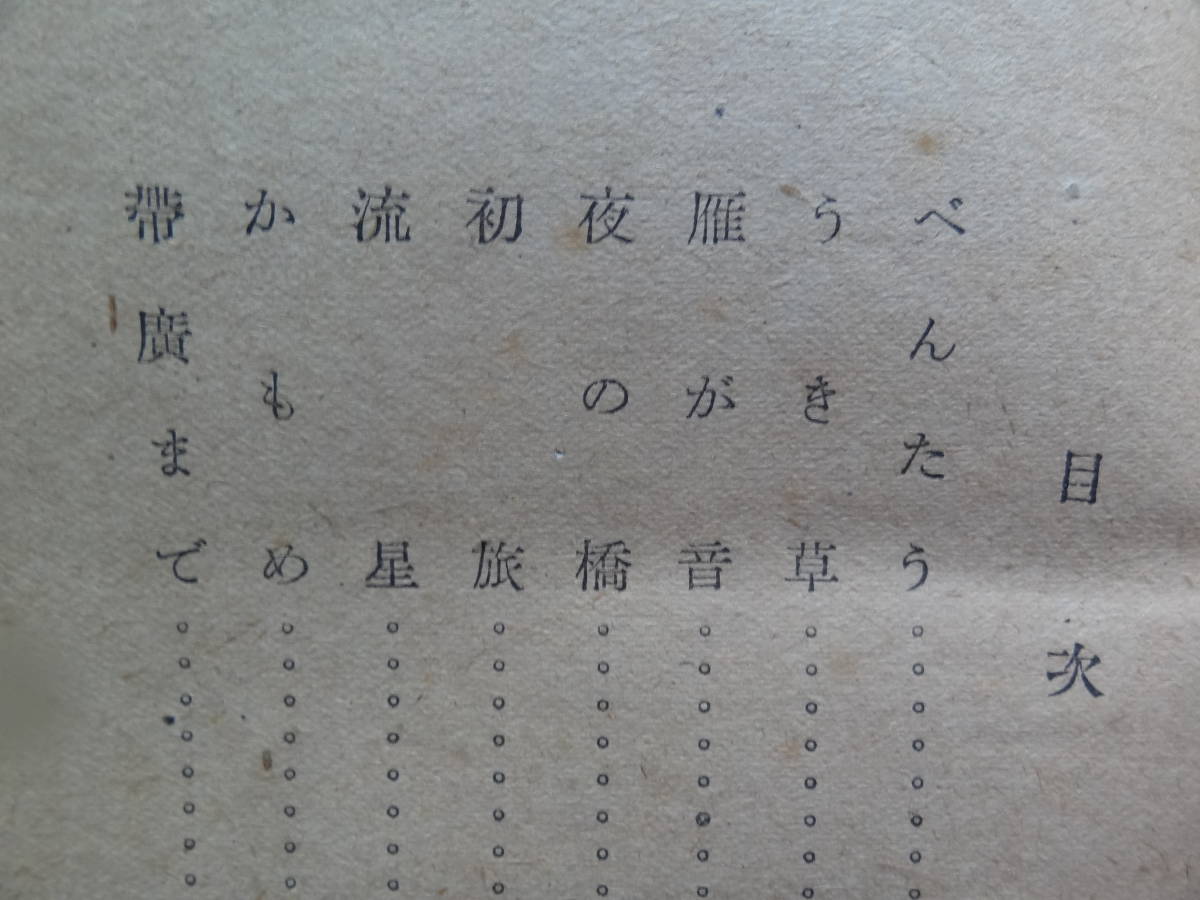 目次
べんたう
うき草
雁が音
夜の橋
初旅
流星
かもめ
帶廣まで